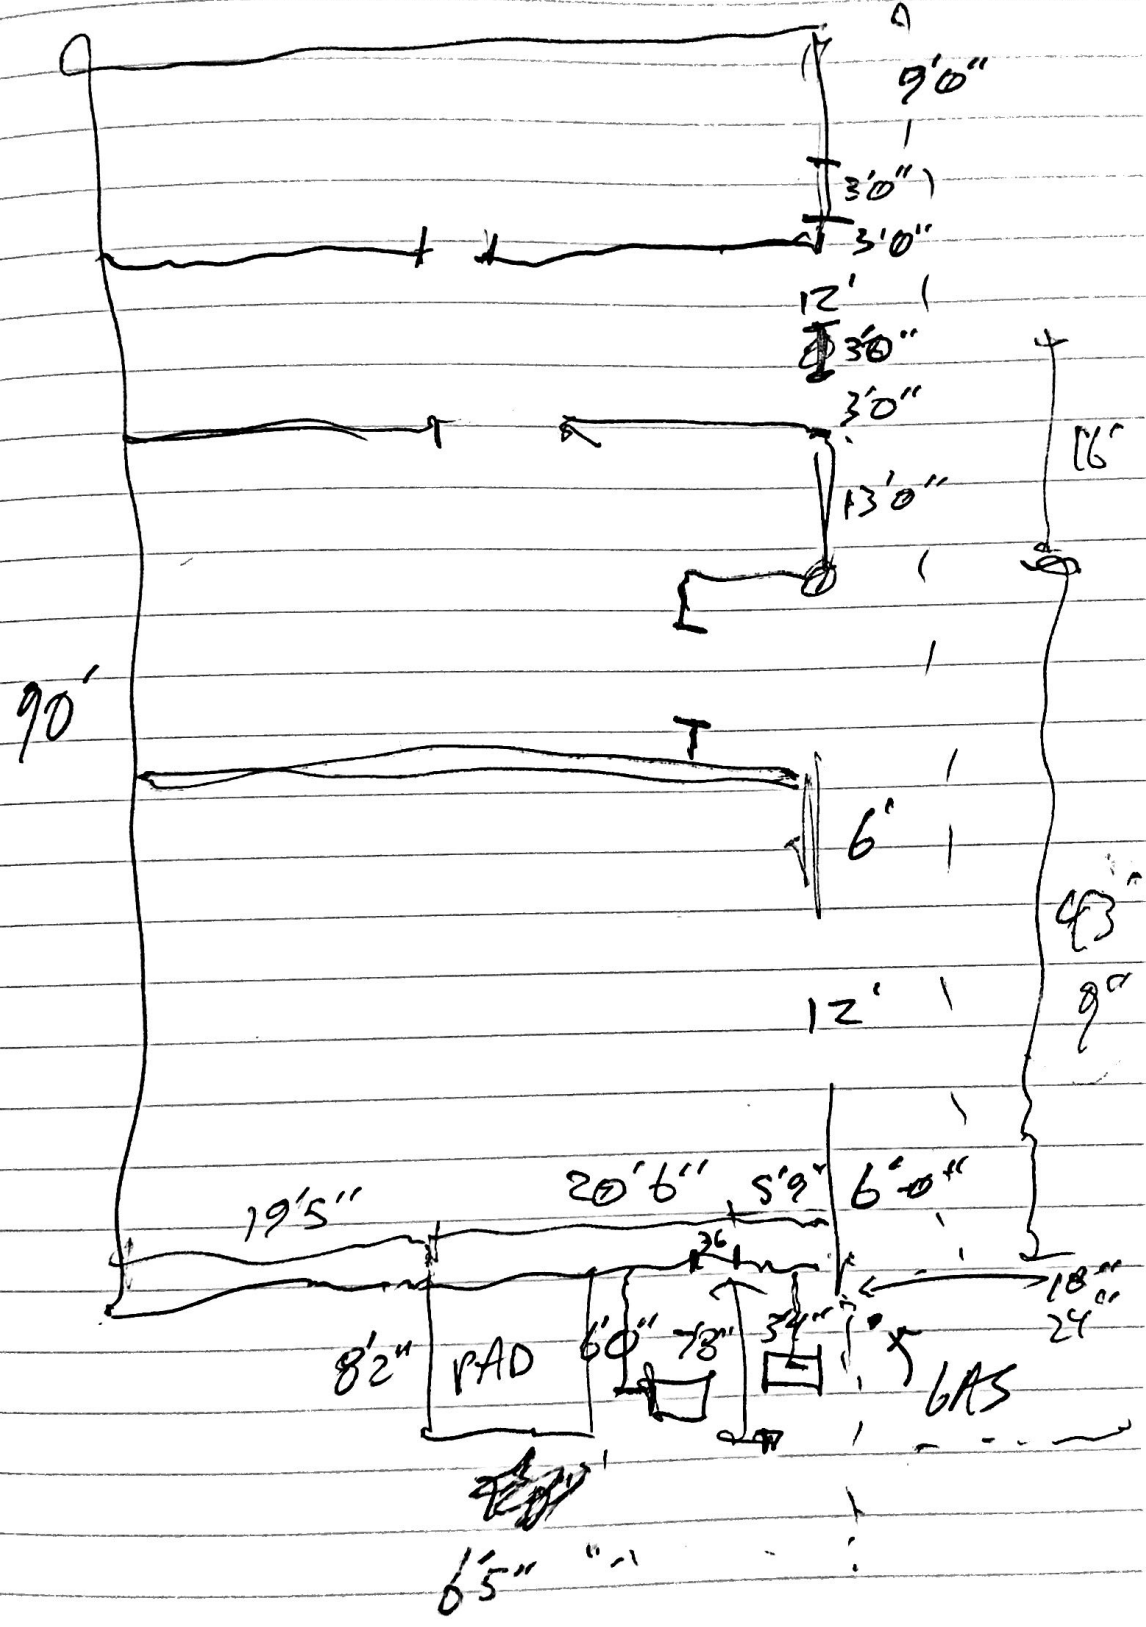 9'0"
3'0"
3'0"
12'
3'0"
3'0"
16'
13'0"
90'
6'
43'
9"
12'
20'6" 5'9" 6'-0"
19'5"
36
18"
24"
8'2" PAD 6'0" 7'8" 3'4"
GAS
6'5"